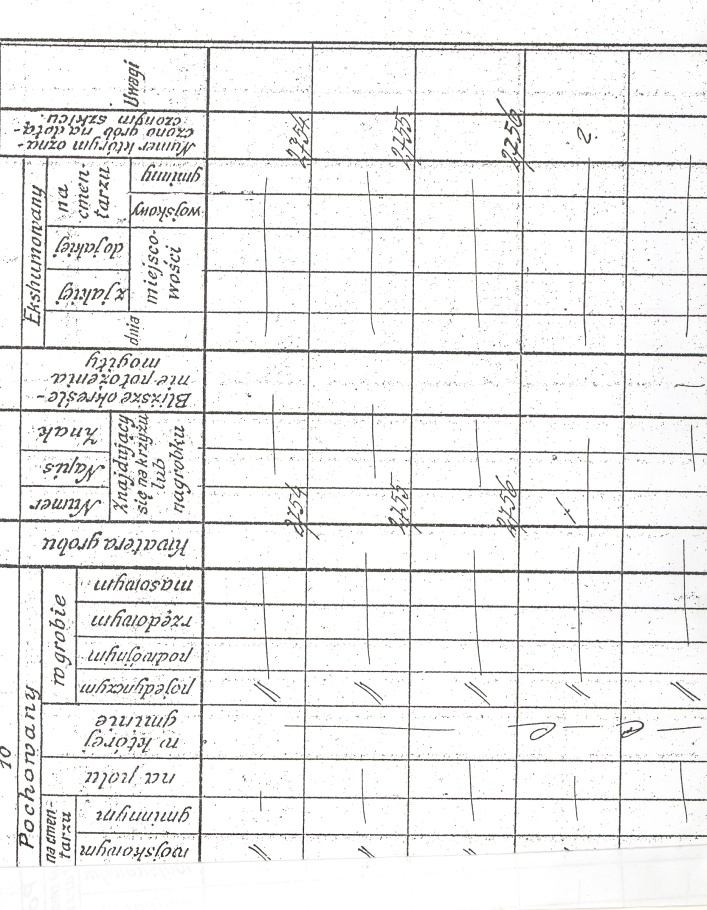 10
Pochowany
na cmen-
tarzu
wojskowym
gminnym
na polu
w której
gminie
w grobie
pojedynczym
podwójnym
rzędowym
masowym
Kwatera grobu
Numer
Napis
Znak
Znajdujący
się na krzyżu
lub
nagrobku
Bliższe określe-
nie położenia
mogiły
Ekshumowany
dnia
z jakiej
do jakiej
miejsco-
wości
na
cmen-
tarzu
wojskowy
gminny
Numer którym ozna-
czono grób na dołą-
czonym szkicu.
Uwagi
" " 2754 2754
" " 2755 2755
" " 2756 2756
" ?
"